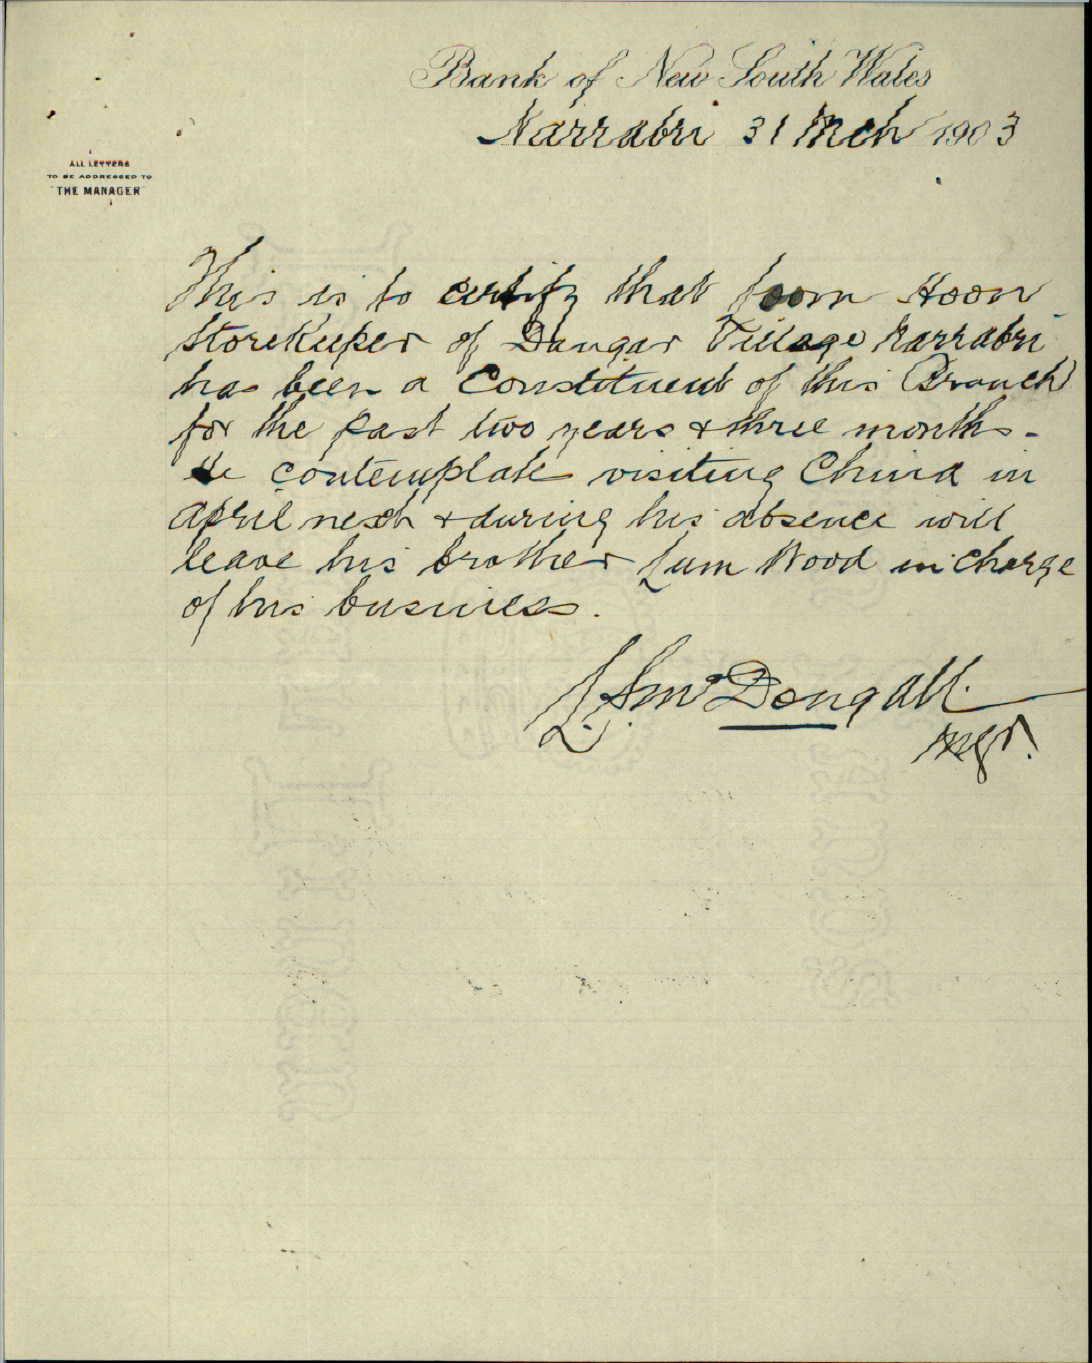 Bank of New South Wales
Narrabri 31 Mch 1903
ALL LETTERS
TO BE ADDRESSED TO
"THE MANAGER"
This is to certify that Hoon
Storekeeper of Dangar Village Narrabri
has been a Constituent of this Branch
for the past two years & three months -
He contemplates visiting China in
April next & during his absence will
leave his brother Lum Wood in charge
of his business.
McDougall
Mgr.